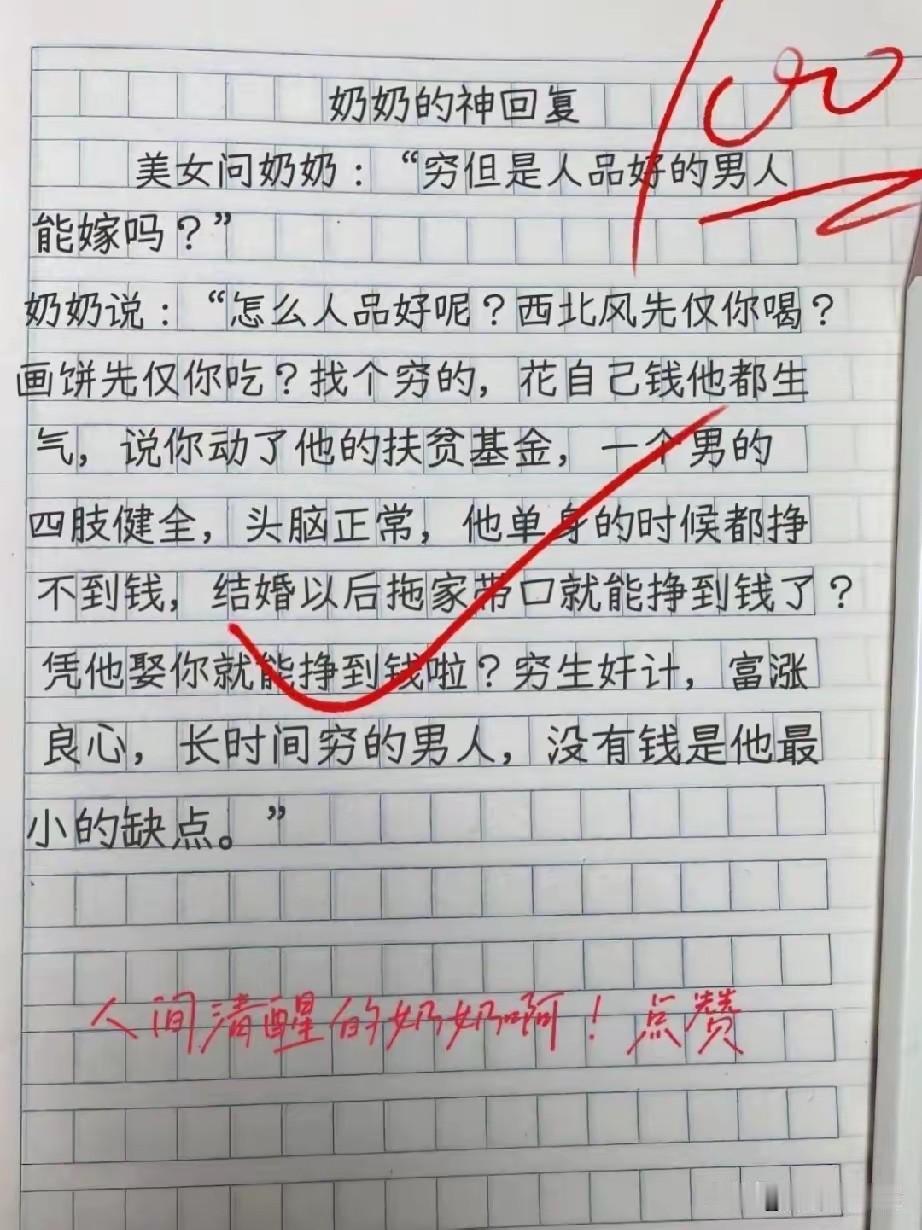 100
奶奶的神回复
美女问奶奶：“穷但是人品好的男人
能嫁吗？”
奶奶说：“怎么人品好呢？西北风先仅你喝？
画饼先仅你吃？找个穷的，花自己钱他都生
气，说你动了他的扶贫基金，一个男的
四肢健全，头脑正常，他单身的时候都挣
不到钱，结婚以后拖家带口就能挣到钱了？
凭他娶你就能挣到钱啦？穷生奸计，富涨
良心，长时间穷的男人，没有钱是他最
小的缺点。”
人间清醒的奶奶啊！点赞